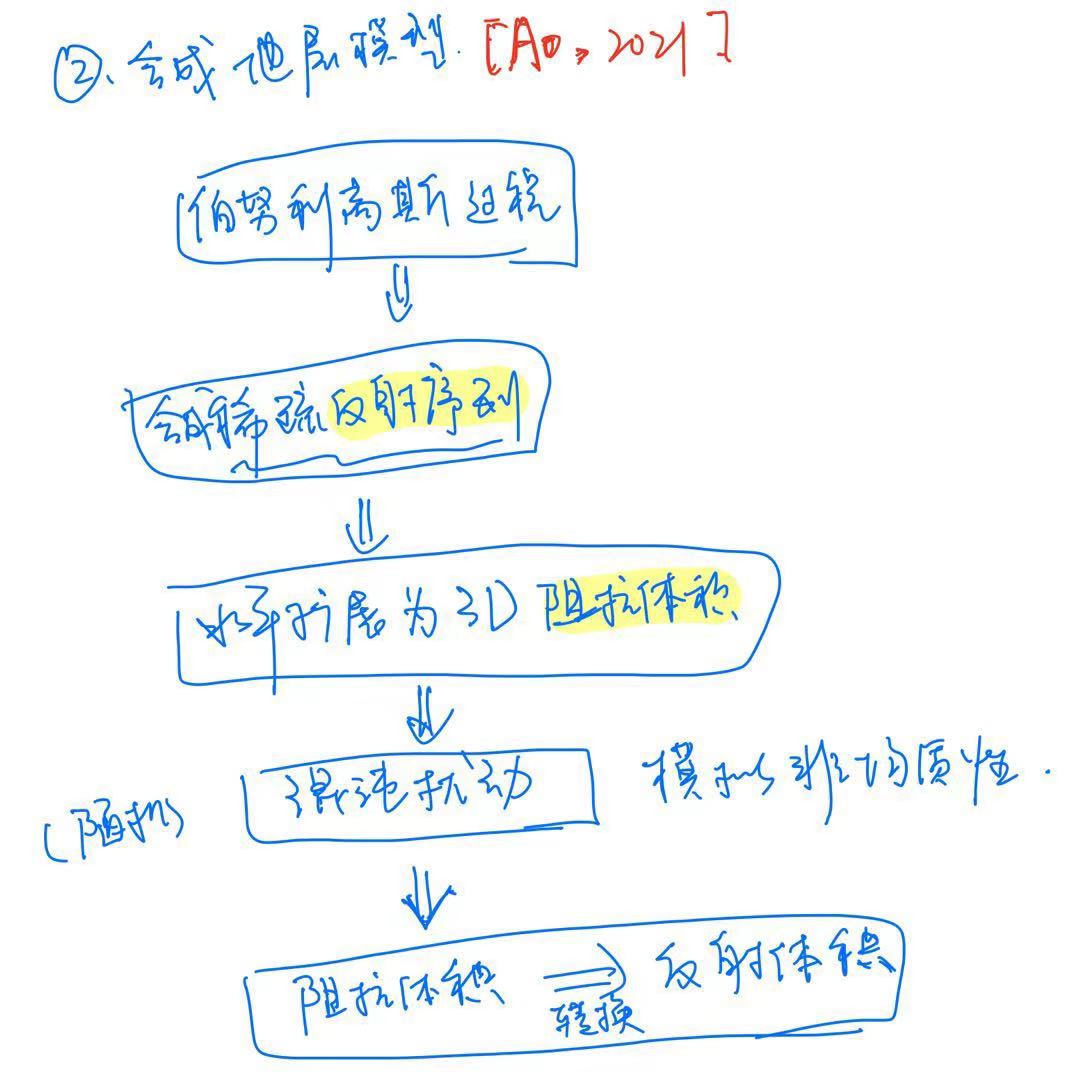 ②、合成地层模型. [Ao, 2021]
伯努利高斯过程
合成稀疏反射序列
水平扩展为3D 阻抗体积
(随机) 混沌扰动 模拟非均质性.
阻抗体积 ⟹ 反射体积
转换